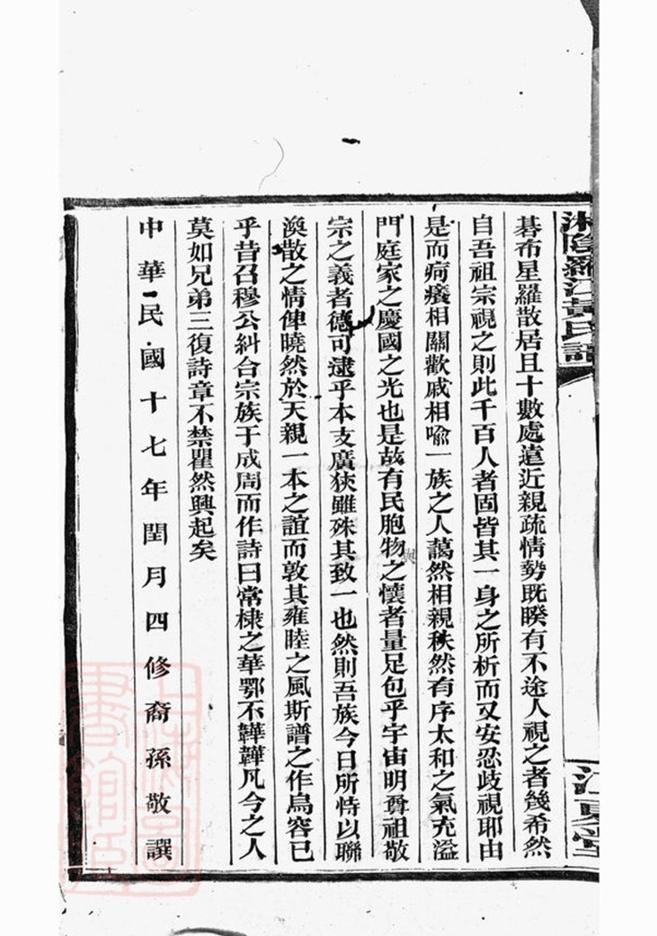 湘陰羅江黃氏譜
江夏堂
碁布星羅散居且十數處遠近親疏情勢既睽有不途人視之者幾希然
自吾祖宗視之則此千百人者固皆其一身之所析而又安忍歧視耶由
是而痾癢相關歡戚相喻一族之人藹然相親秩然有序太和之氣充溢
門庭家之慶國之光也是故有民胞物與之懷者量足包乎宇宙明尊祖敬
宗之義者德可逮乎本支廣狹雖殊其致一也然則吾族今日所恃以聯
渙散之情俾曉然於天親一本之誼而敦其雍睦之風斯譜之作烏容已
乎昔召穆公糾合宗族于成周而作詩曰常棣之華鄂不韡韡凡今之人
莫如兄弟三復詩章不禁瞿然興起矣
中華民國十七年閏月四修裔孫敬譔
上海圖書館藏